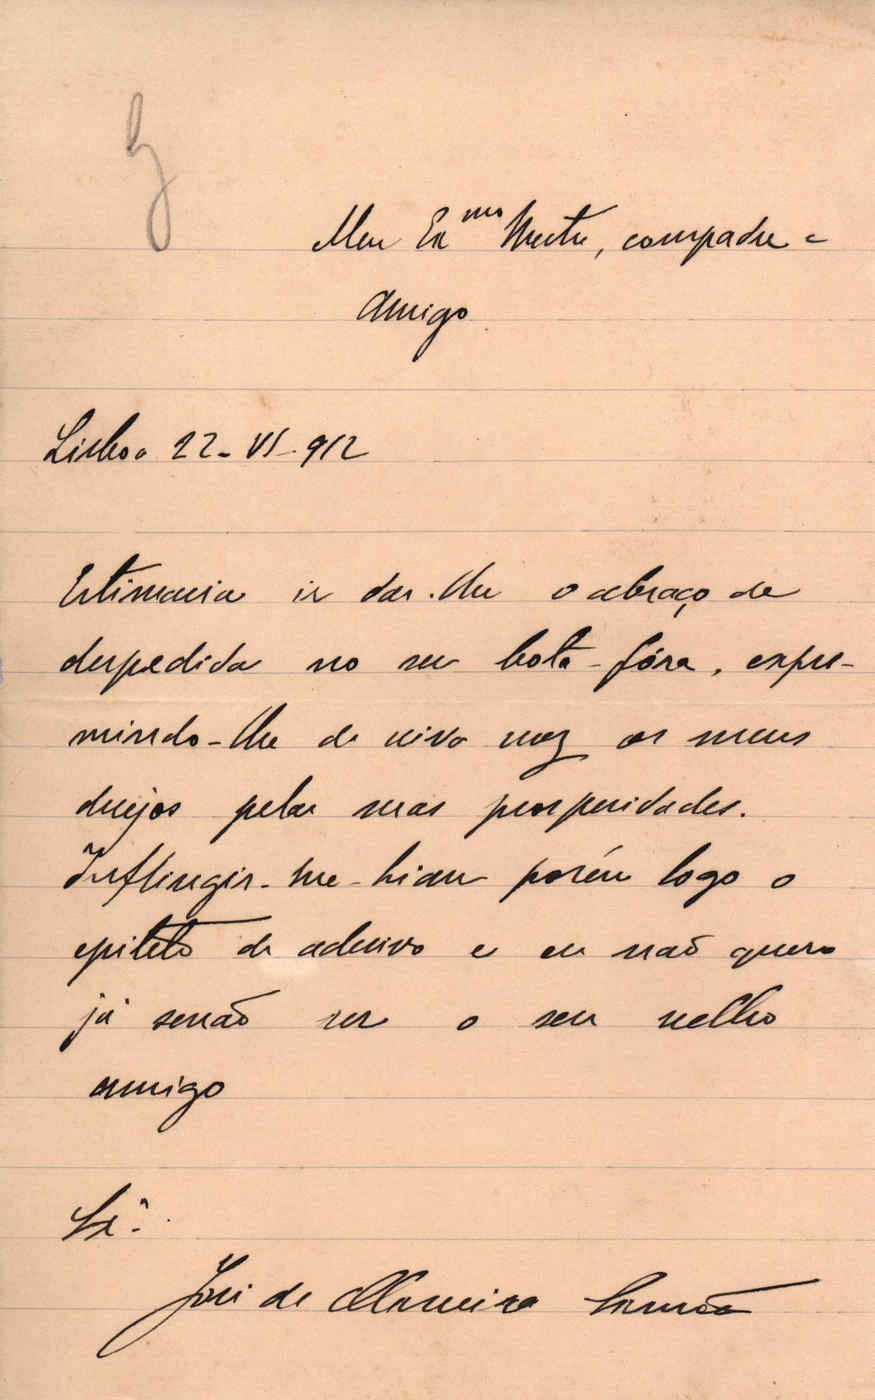 Meu Ex.mo Mestre, compadre e
amigo
Lisboa 22-VI-912
Estimaria ir dar-lhe o abraço de
despedida no seu bota-fóra, expri-
mindo-lhe de viva voz os meus
desejos pelas suas prosperidades.
Inflingir-me-hiam porém logo o
epiteto de adesivo e eu não quero
já senão ser o seu velho
amigo
José de